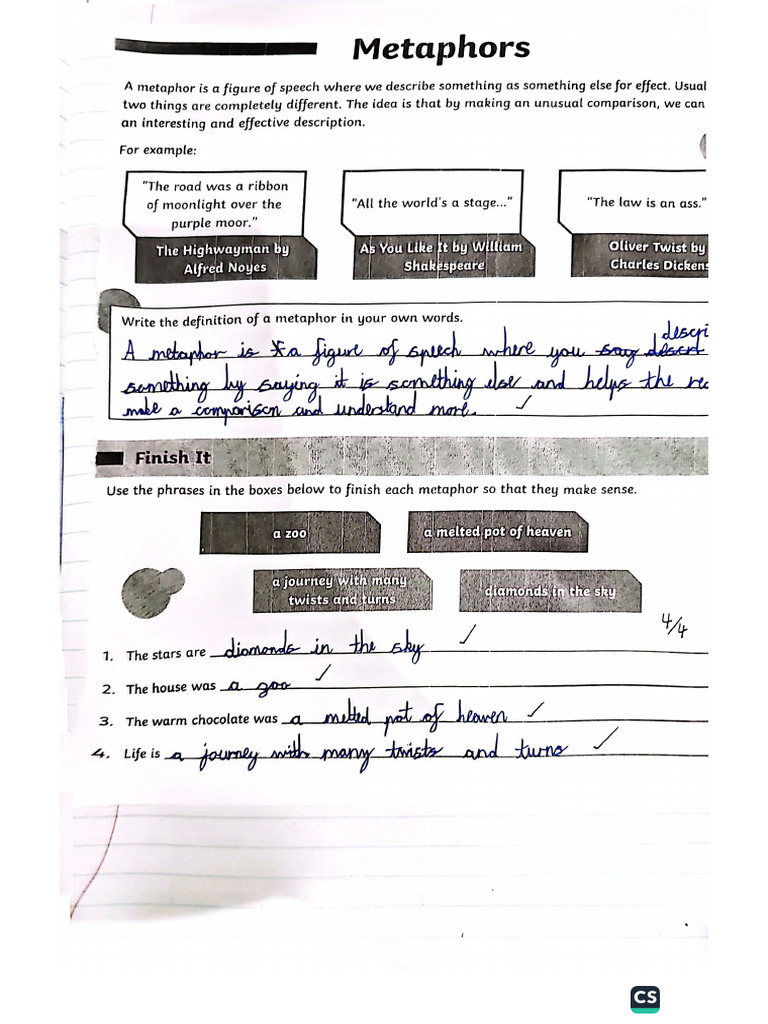 Metaphors
A metaphor is a figure of speech where we describe something as something else for effect. Usual
two things are completely different. The idea is that by making an unusual comparison, we can
an interesting and effective description.
For example:
"The road was a ribbon
of moonlight over the
purple moor."
The Highwayman by
Alfred Noyes
"All the world's a stage..."
As You Like It by William
Shakespeare
"The law is an ass."
Oliver Twist by
Charles Dickens
Write the definition of a metaphor in your own words.
descri
A metaphor is a figure of speech where you say descri
something by saying it is something else and helps the rea
make a comparison and understand more.
Finish It
Use the phrases in the boxes below to finish each metaphor so that they make sense.
a zoo
a melted pot of heaven
a journey with many
twists and turns
diamonds in the sky
4/4
1. The stars are diamonds in the sky
2. The house was a zoo
3. The warm chocolate was a melted pot of heaven
4. Life is a journey with many twists and turns
CS